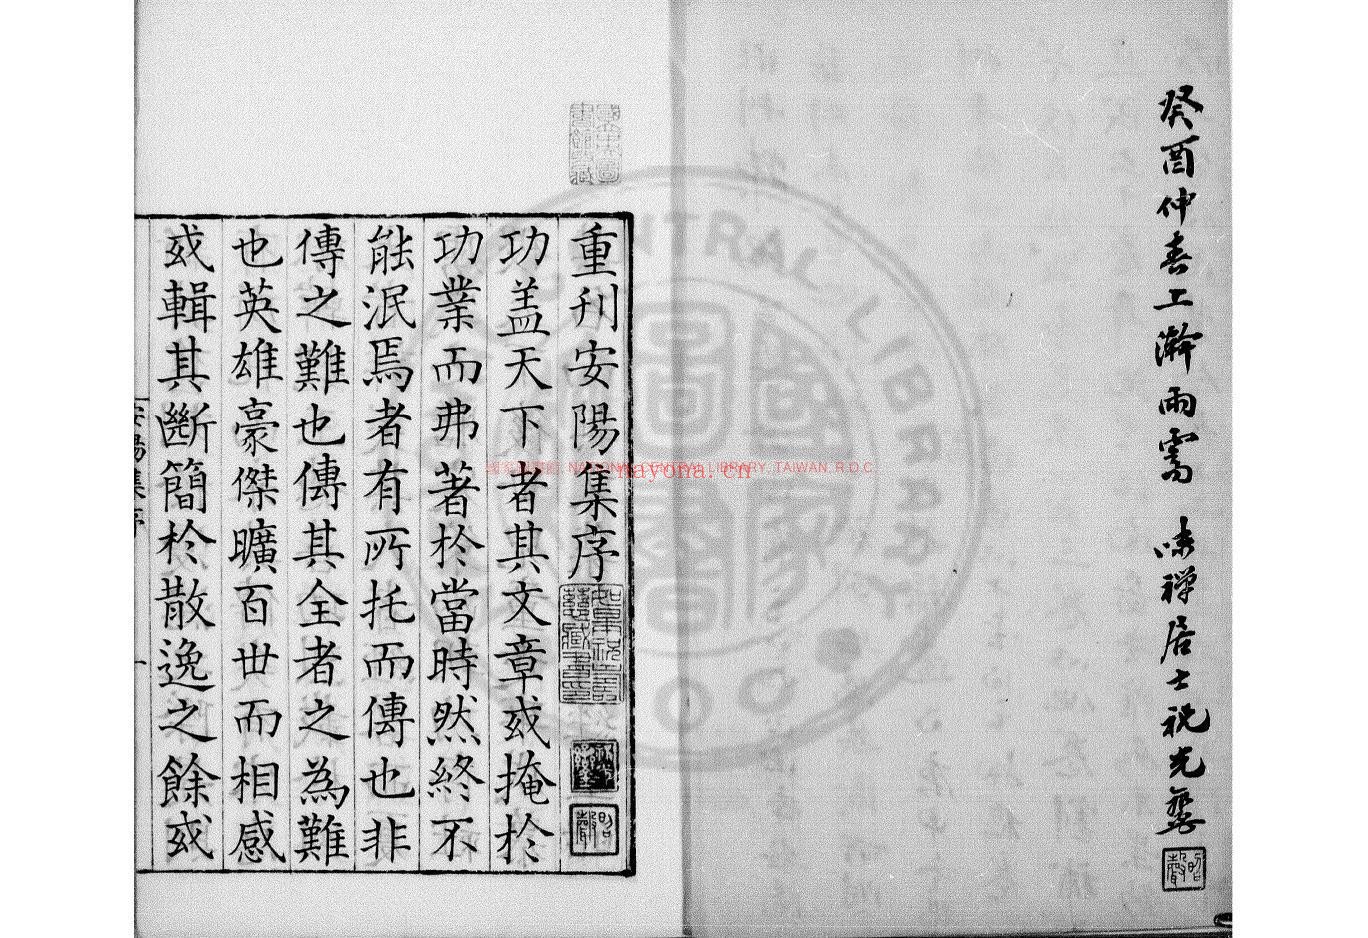 癸酉仲春工澣雨窗 味禪居士祝光
重刊安陽集序
功盖天下者其文章或掩於
功業而弗著於當時然終不
能泯焉者有所托而傳也非
傳之難也傳其全者之為難
也英雄豪傑曠百世而相感
或輯其斷簡於散逸之餘或
安陽集序 一
國家圖書館 NATIONAL CENTRAL LIBRARY, TAIWAN R.O.C
nayona.cn
CENTRAL LIBRARY